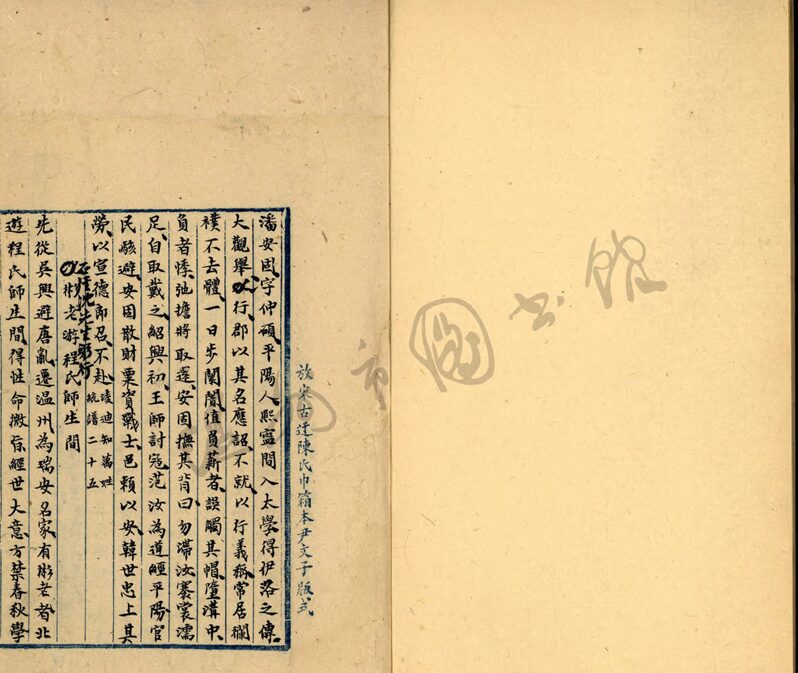 放宋古迂陳氏巾箱本尹文子版式
潘安固字仲碩平陽人熙寧間入太學得伊洛之傳
大觀舉以行郡以其名應詔不就以行義稱常居襴
襆不去體一日步闤闠值負薪者誤觸其帽墮溝中
負者悸弛擔將取還安固撫其背曰勿滯汝褰裳濡
足自取戴之紹興初王師討寇范汝為道經平陽官
民駭避安固散財粟資戰士邑賴以安韓世忠上其
勞以宣德郎召不赴凌迪知萬姓統譜二十五
石經沈先生躬行
彬老游程氏師生間
先從吳興避唐亂遷温州為瑞安名家有彬老者北
遊程氏師生間得性命微旨經世大意方禁春秋學
市圖書館